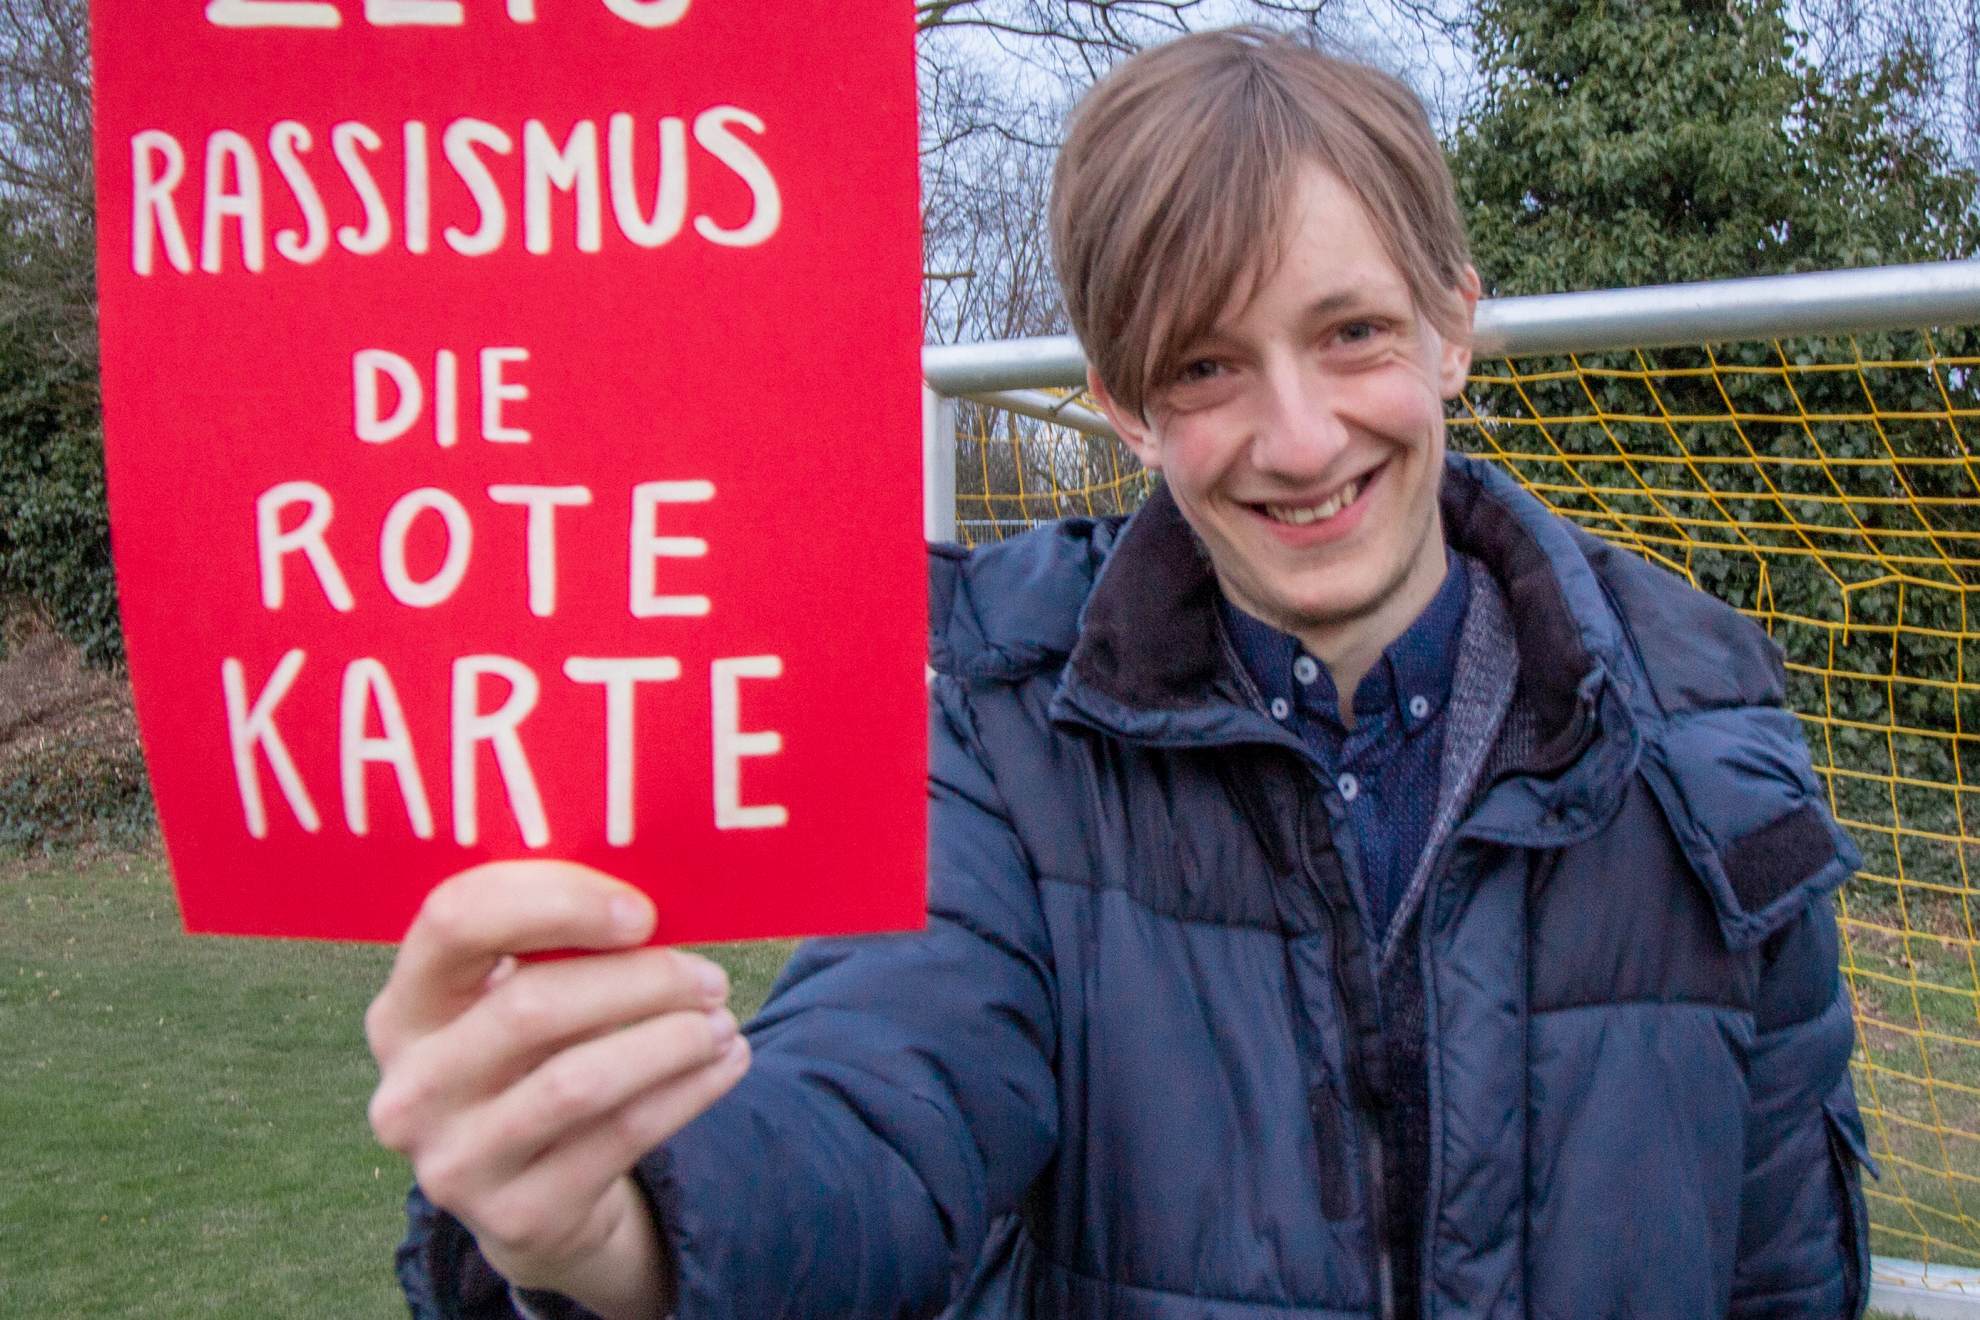 RASSISMUS
DIE
ROTE
KARTE